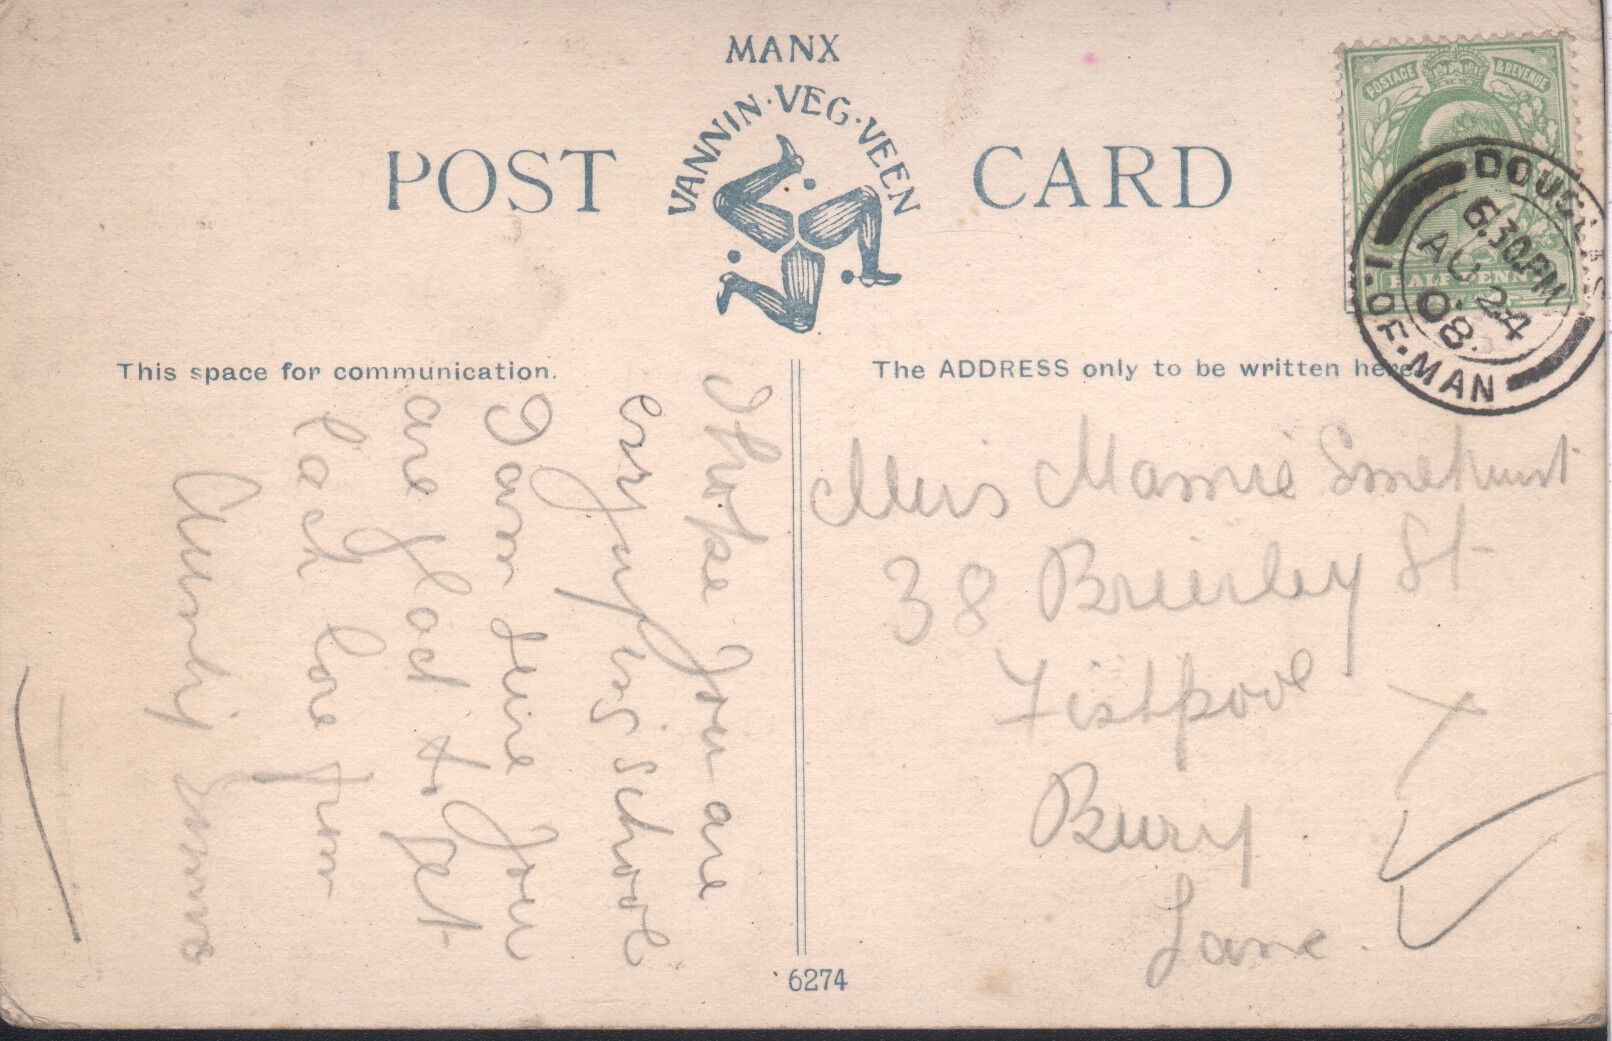 MANX
VANNIN·VEG·VEEN
POST CARD
POSTAGE & REVENUE
HALFPENNY
DOUGLAS
6.30PM
AU 24
08
I·OF·MAN
This space for communication.
The ADDRESS only to be written here.
I hope you are
enjoying school
I am sure you
are glad to get
back love from
Aunty
Miss Mamie Smethurst
38 Brierley St
Fishpool
Bury
Lanc.
6274